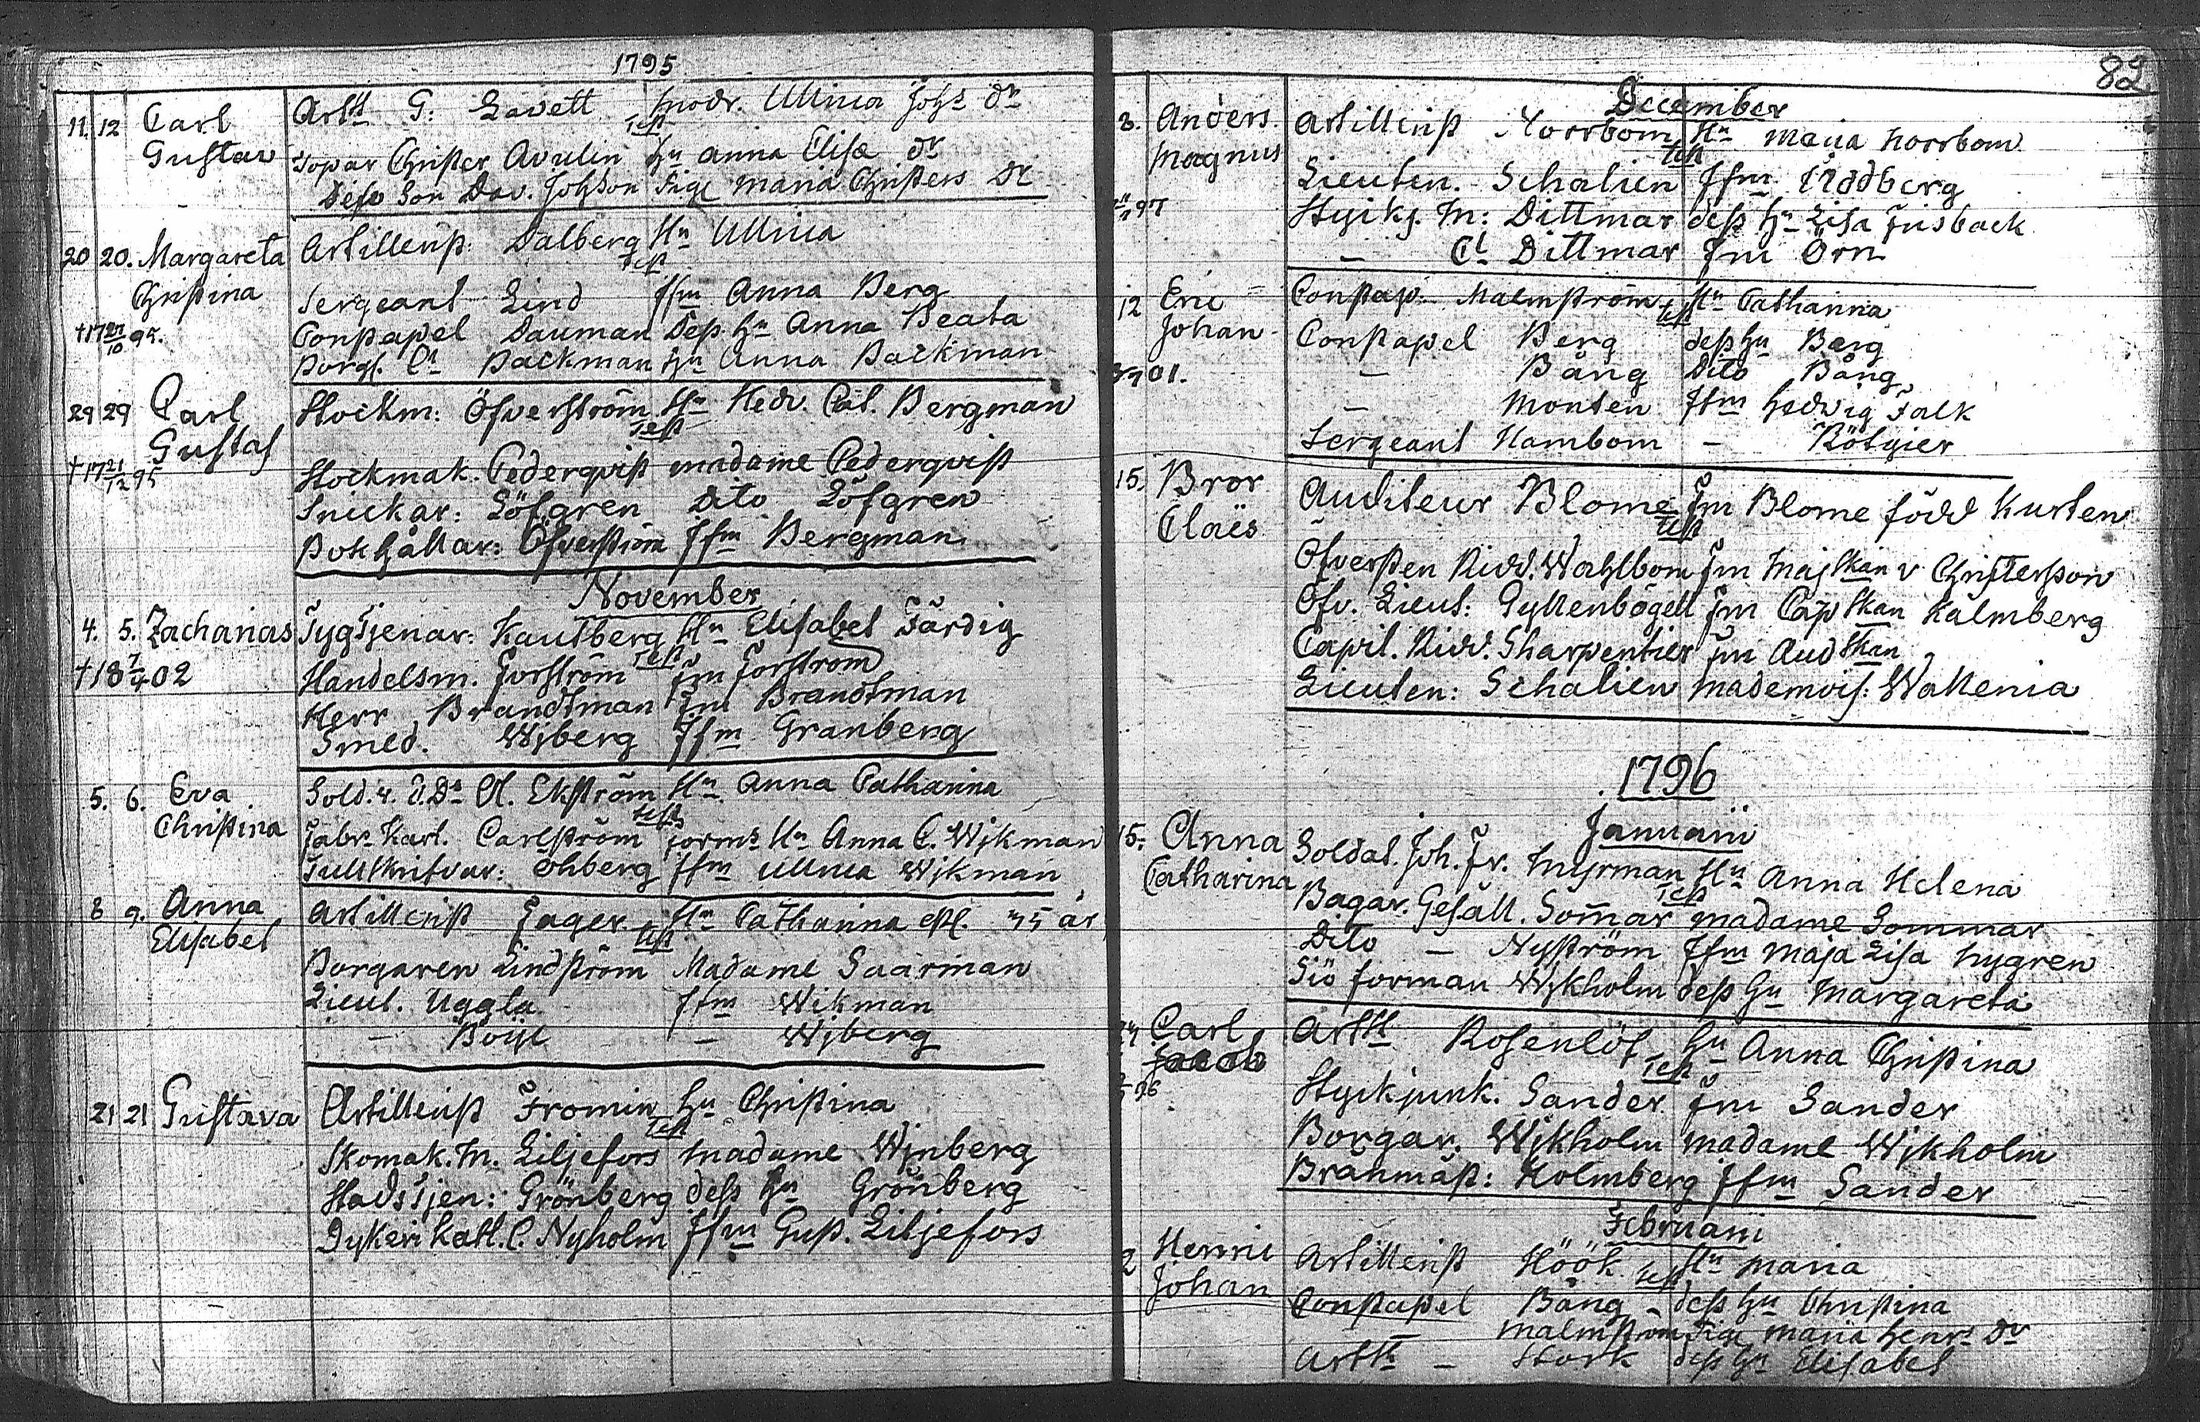 1795
11. 12 Carl Artll G: Lavett modr. Ullrica Johs dr
Gustav Test
Sopar Christer Avulin Hu Anna Elisæ dr
Dess Son Dav. Johsson Pige Maria Christers Dr
20 20. Margareta Artillerist: Dalberg Hu Ullrica
Test
Christina Sergeant Lind Jfm Anna Berg
†17 /10 95. Constapel Dauman Dess Hu Anna Beata
Borgl. Ct Backman Hu Anna Backman
29 29 Carl Stockm: Öfverström Hu Hedv. Cat. Bergman
Gustaf Test
†17 21/12 95 Stockmak. Cederqvist madame Cederqvist
Snickar: Löfgren Dito Löfgren
Bokhållar: Öfverström Jfm Bergman
November
4. 5. Zacharias Tygtjenar: Kautberg Hu Elisabet Färdig
Test
†18 7/4 02 Handelsm. Forström Fru Forström
Herr Brandtman Fru Brandtman
Smed. Wjberg Jfm Granberg
5. 6. Eva Sold. v. E. Dn Cl. Ekström Hu Anna Catharina
Test
Christina Fabr. Karl. Carlström Hu Anna C. Wjkman
Tullskrifvar: Ohberg Jfm Ullrica Wjkman
8 9. Anna Artillerist Jager Hu Catharina 35 år
Elisabet Test
Borgaren Lindström Madame Saarman
Lieut. Uggla Jfm Wikman
— Boije — Wjberg
21 21 Gustava Artillerist Fromin Hu Christina
Test
Skomak. M. Liljefors madame Wjnberg
Stadstjen: Grönberg dess Hu Grönberg
Dykeri Karl. C. Nyholm Jfm Gust. Liljefors
82
December
8. Anders Artillerist Norrbom Hu Maria Norrbom
Magnus Test
Lieuten. Schalien Jfm Uddberg
97 Styckj. M: Dittmar dess Hu Lisa Frisback
— Ct Dittmar Fru Örn
12 Eric Constap: Malmström Hu Catharina
Test
Johan Constapel Berg dess Hu Berg
01. — Bång Dito Bång
— Monten Jfm Hedvig Falk
Sergeant Hambom — Rötgier
15. Bror Auditeur Blome Fru Blome född Kurten
Claës Test
Öfversten Ridd. Wahlbom Fru Majskan v Christersson
Öfv. Lieut: Gyllenbögell Fru Capskan Kalmberg
Capit. Ridd. Sharpentier Fru Audskan
Lieuten: Schalien Mademois: Wallenia
1796
Januarii
15. Anna Soldat. Joh. Fr. Myrman Hu Anna Helena
Test
Catharina Bagar. Gesäll. Som̄ar madame Sommar
Dito — Nyström Jfm Maja Lisa Nygren
Siö forman Wjkholm dess Hu Margareta
24 Carl Artll Rosenlöf Hu Anna Christina
Jacob Test
96 Styckjunk. Sander Fru Sander
Borgar. Wjkholm madame Wjkholm
Bränmäst: Holmberg Jfm Sander
Februarii
2 Henric Artillerist Höök Hu Maria
Test
Johan Constapel Bång — dess Hu Christina
Malmström Pige Maria Henrs dr
Artll — Stork dess Hu Elisabet